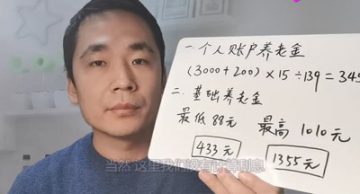 一 个人账户养老金
(3000+200)×15÷139=345
二、基础养老金
最低 88元 最高 1010元
433元 1355元
当然 这里我们没有计算利息